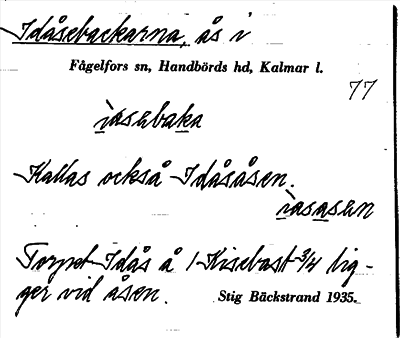 Idåsebackarna, ås i
Fågelfors sn, Handbörds hd, Kalmar l.
77
iasebaka
Kallas också Idåsåsen.
iasasen
Torpet Idås å 1 Kisebast 3/4 lig-
ger vid åsen. Stig Bäckstrand 1935.